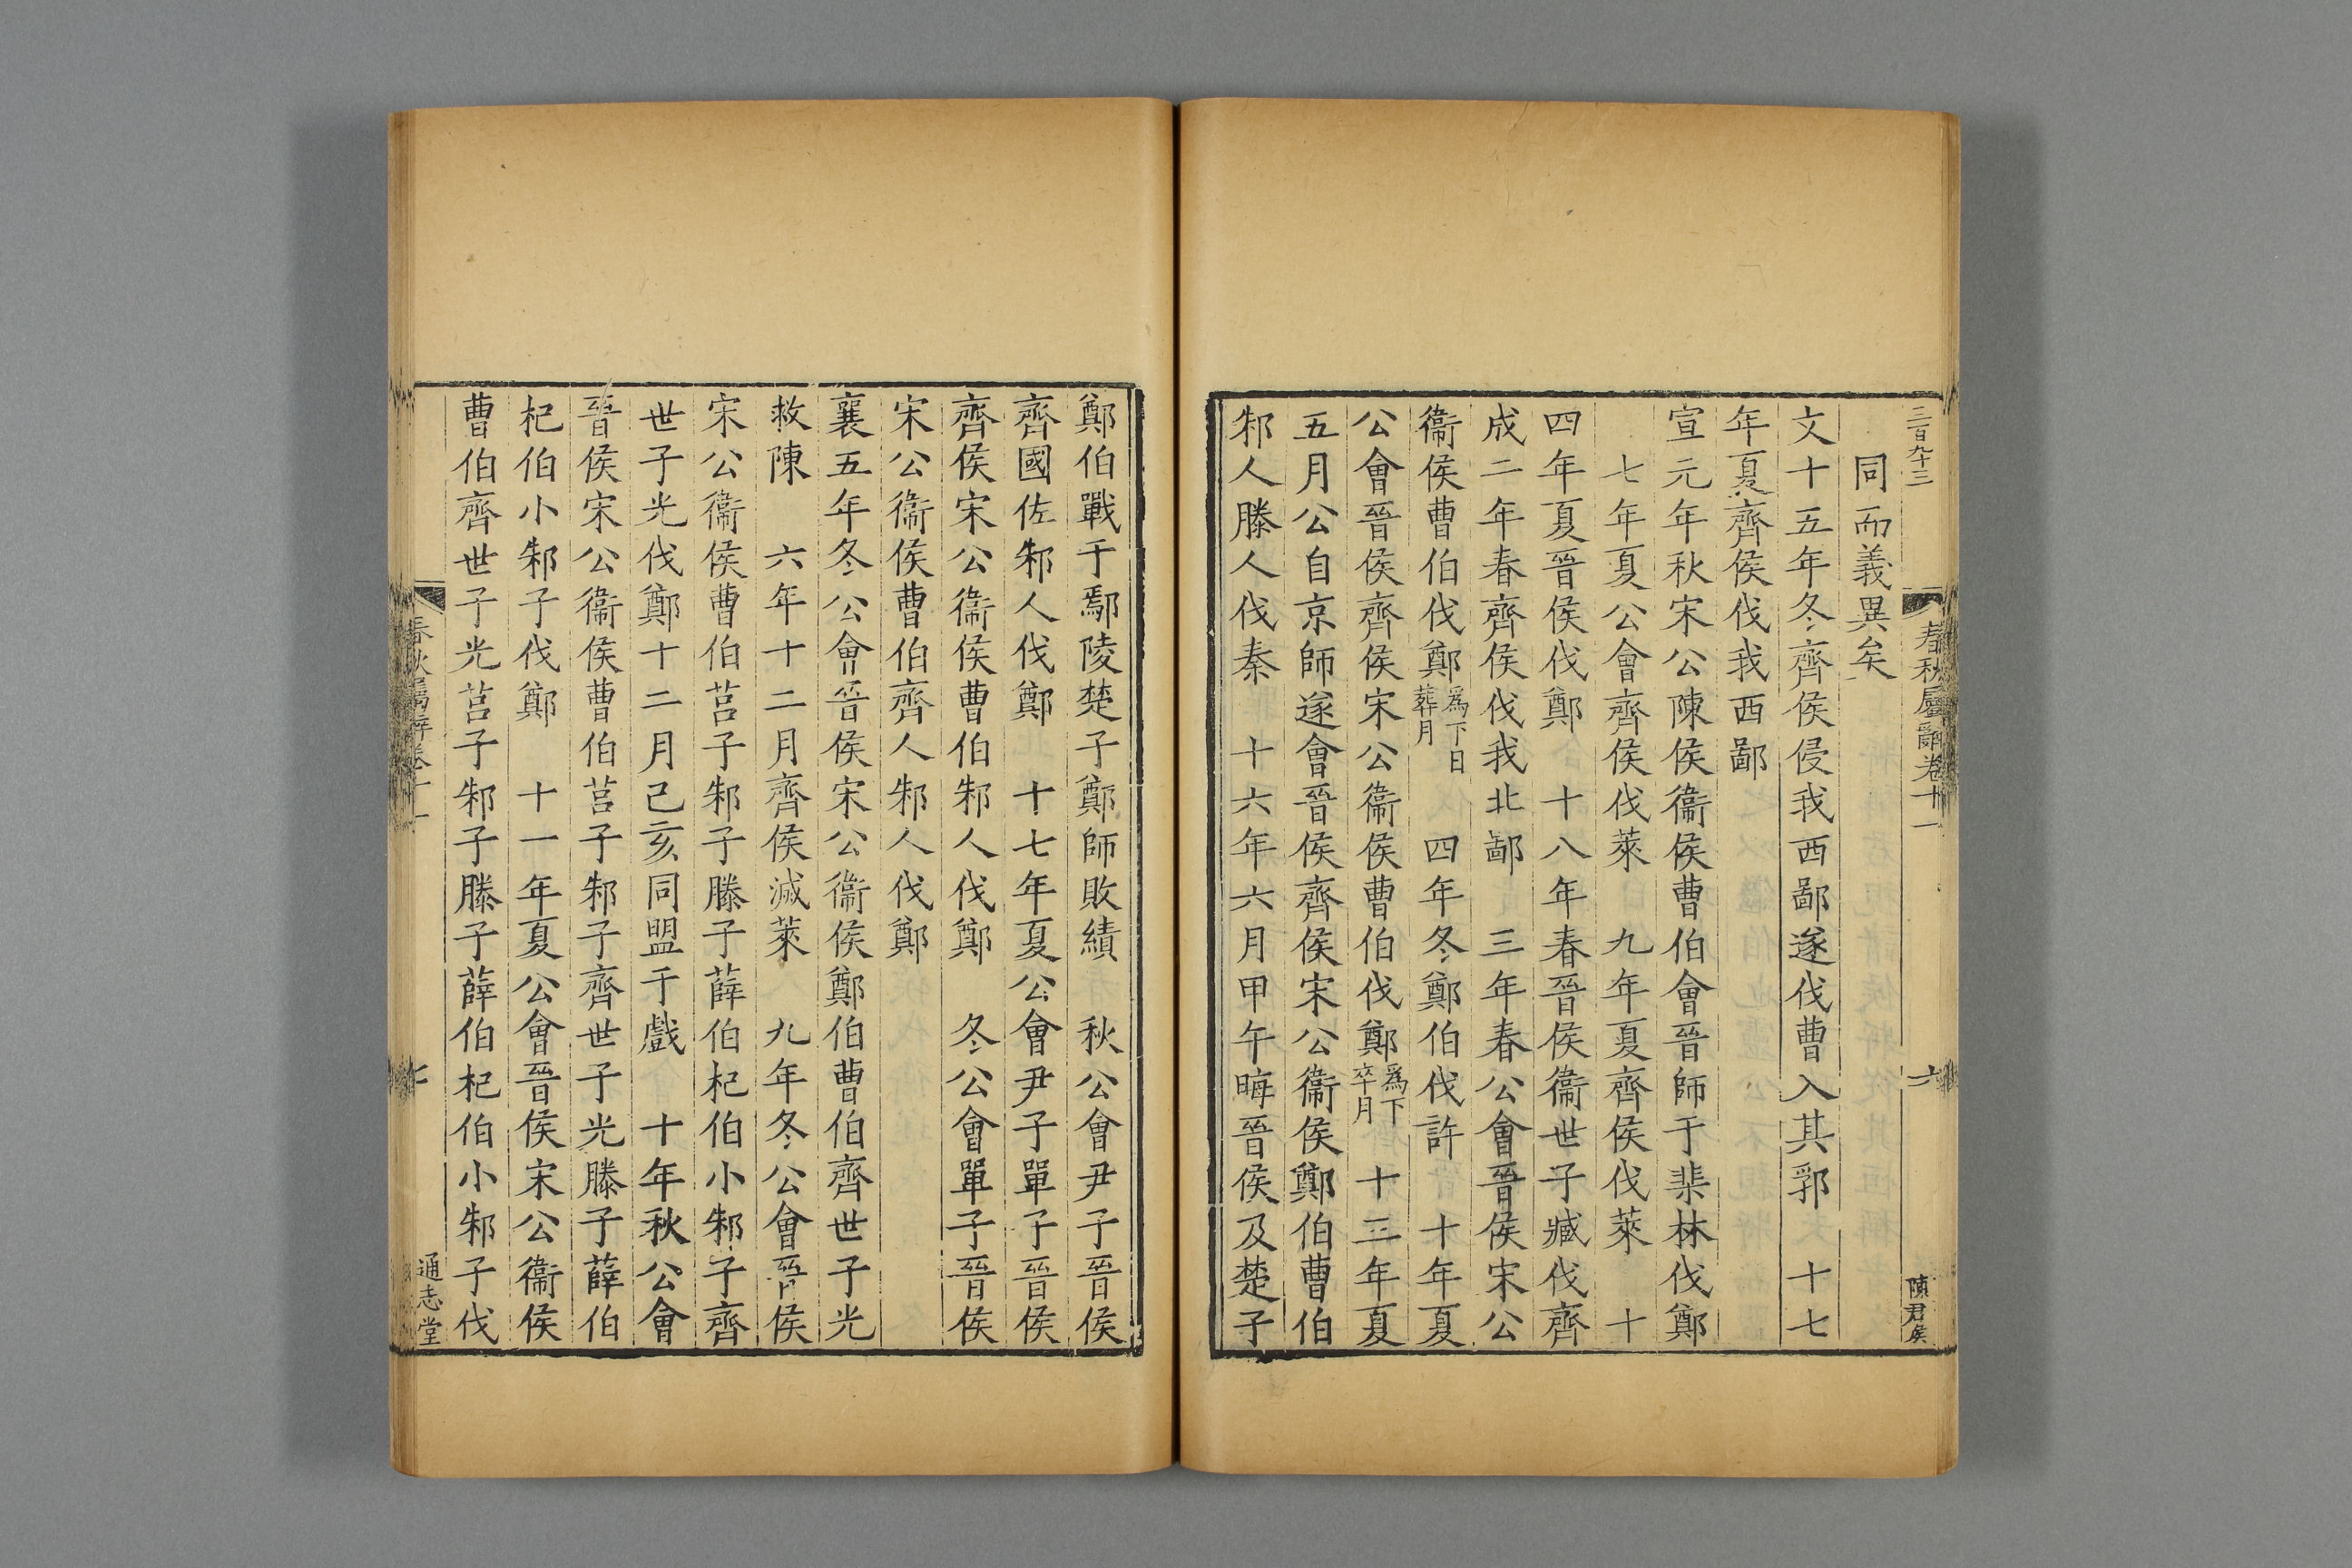 三百九十三
春秋屬辭卷十一
六
陳君侯
同而義異矣
文十五年冬齊侯侵我西鄙遂伐曹入其郛 十七
年夏齊侯伐我西鄙
宣元年秋宋公陳侯衞侯曹伯會晉師于棐林伐鄭
七年夏公會齊侯伐萊 九年夏齊侯伐萊 十
四年夏晉侯伐鄭 十八年春晉侯衞世子臧伐齊
成二年春齊侯伐我北鄙 三年春公會晉侯宋公
衞侯曹伯伐鄭爲下日葬月 四年冬鄭伯伐許 十年夏
公會晉侯齊侯宋公衞侯曹伯伐鄭爲下卒月 十三年夏
五月公自京師遂會晉侯齊侯宋公衞侯鄭伯曹伯
邾人滕人伐秦 十六年六月甲午晦晉侯及楚子
鄭伯戰于鄢陵楚子鄭師敗績 秋公會尹子晉侯
齊國佐邾人伐鄭 十七年夏公會尹子單子晉侯
齊侯宋公衞侯曹伯邾人伐鄭 冬公會單子晉侯
宋公衞侯曹伯齊人邾人伐鄭
襄五年冬公會晉侯宋公衞侯鄭伯曹伯齊世子光
救陳 六年十二月齊侯滅萊 九年冬公會晉侯
宋公衞侯曹伯莒子邾子滕子薛伯杞伯小邾子齊
世子光伐鄭十二月己亥同盟于戲 十年秋公會
晉侯宋公衞侯曹伯莒子邾子齊世子光滕子薛伯
杞伯小邾子伐鄭 十一年夏公會晉侯宋公衞侯
曹伯齊世子光莒子邾子滕子薛伯杞伯小邾子伐
春秋屬辭卷十一
通志堂